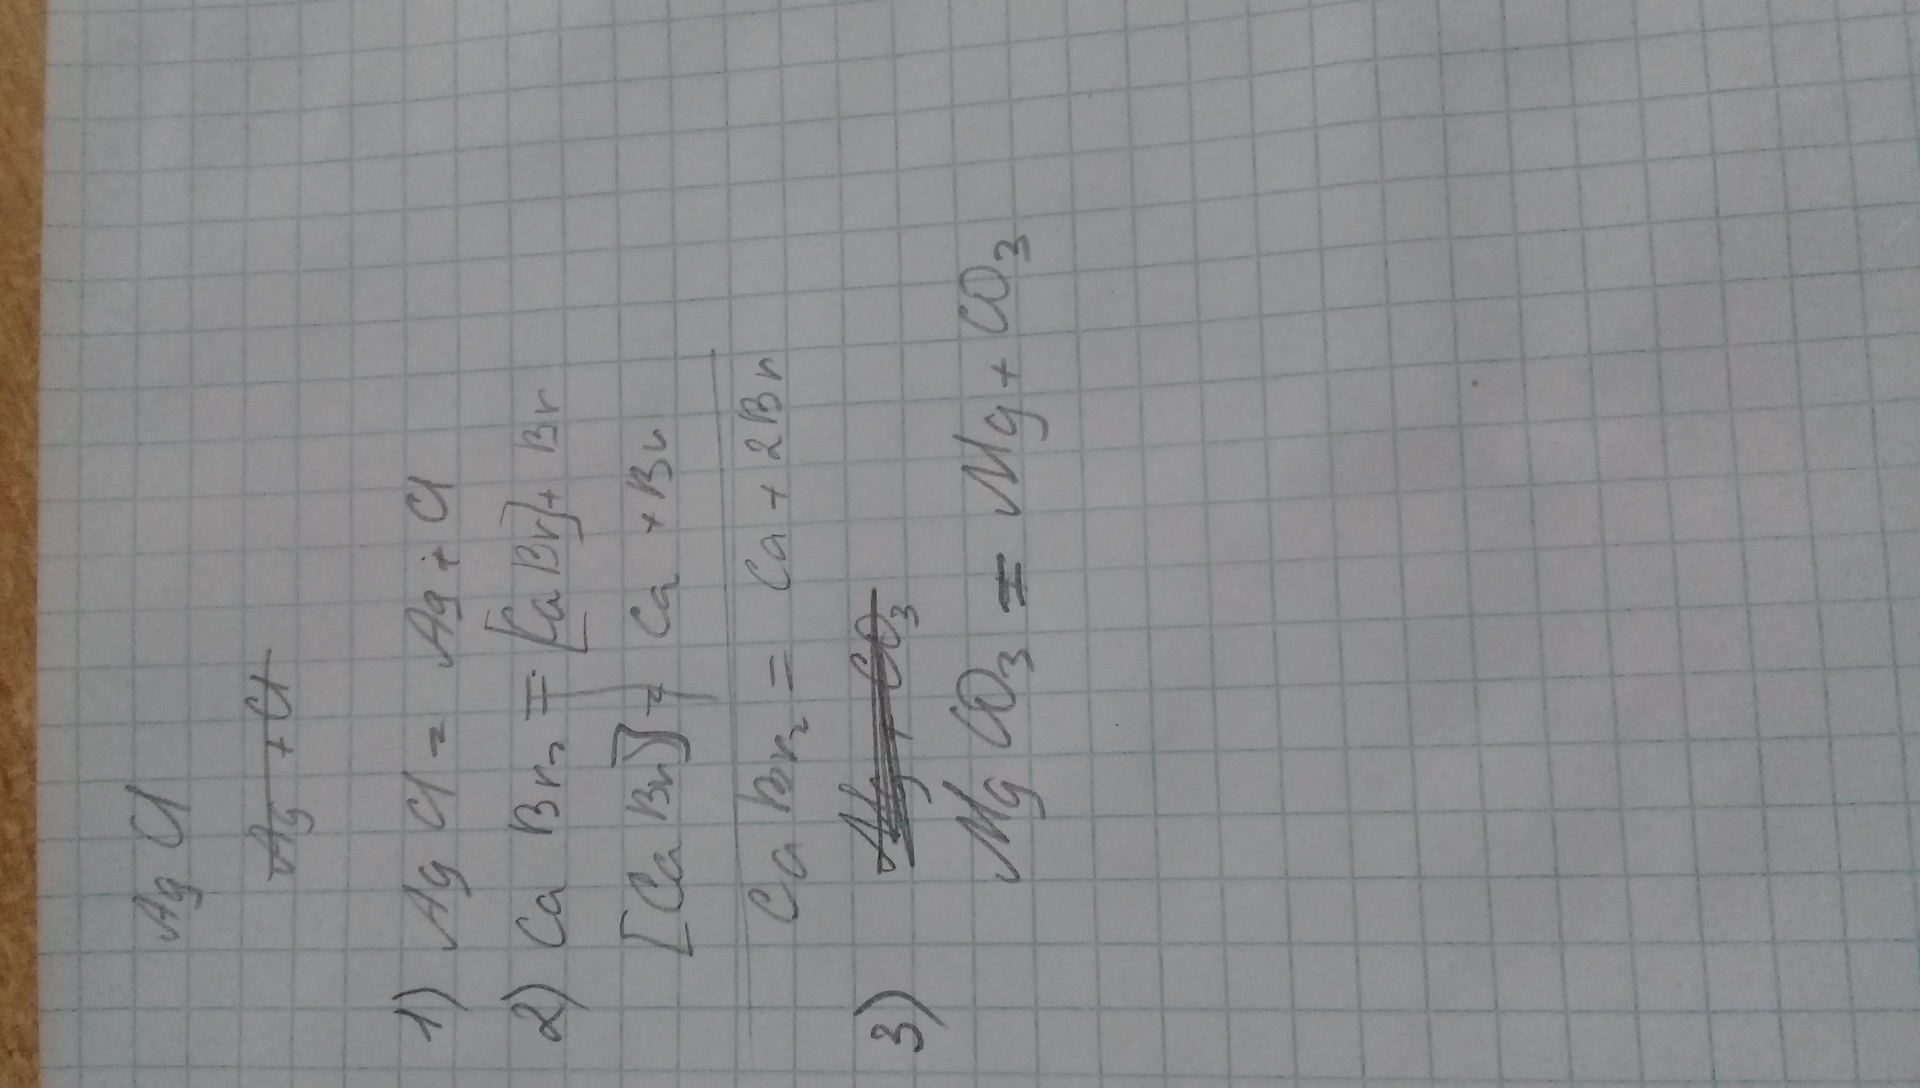 Ag Cl
Ag + Cl
1) Ag Cl = Ag + Cl
2) Ca Br₂ = [Ca Br] + Br
[Ca Br] = Ca + Br
Ca Br₂ = Ca + 2Br
3) Mg + CO₃
Mg CO₃ = Mg + CO₃